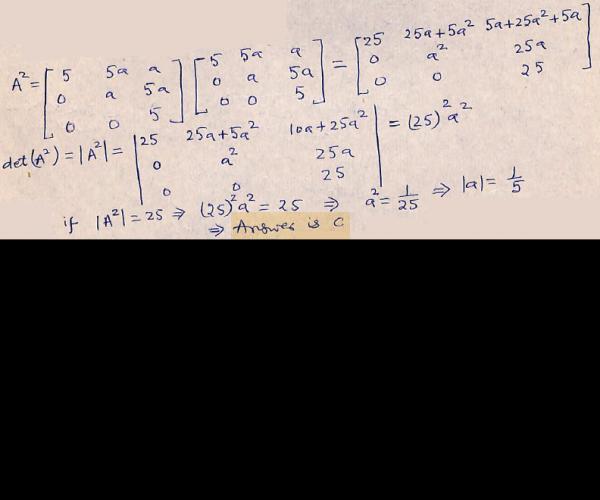 A² = [5 5a a; 0 a 5a; 0 0 5] [5 5a a; 0 a 5a; 0 0 5] = [25 25a+5a² 5a+25a²+5a; 0 a² 25a; 0 0 25]
det(A²) = |A²| = |25 25a+5a² 10a+25a²; 0 a² 25a; 0 0 25| = (25)² a²
if |A²| = 25 ⇒ (25)² a² = 25 ⇒ a² = 1/25 ⇒ |a| = 1/5
⇒ Answer is C